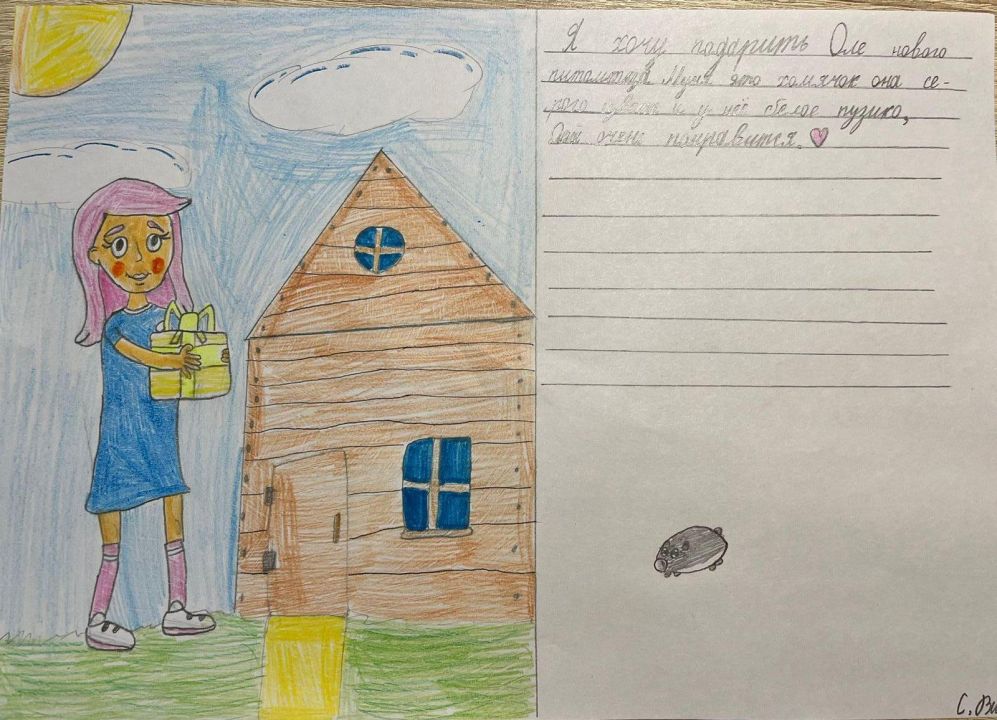 Я хочу подарить Оле нового
питомца Муня это хомячок она се-
рого цвета и у неё белое пузико,
очень понравится.
С. Ви